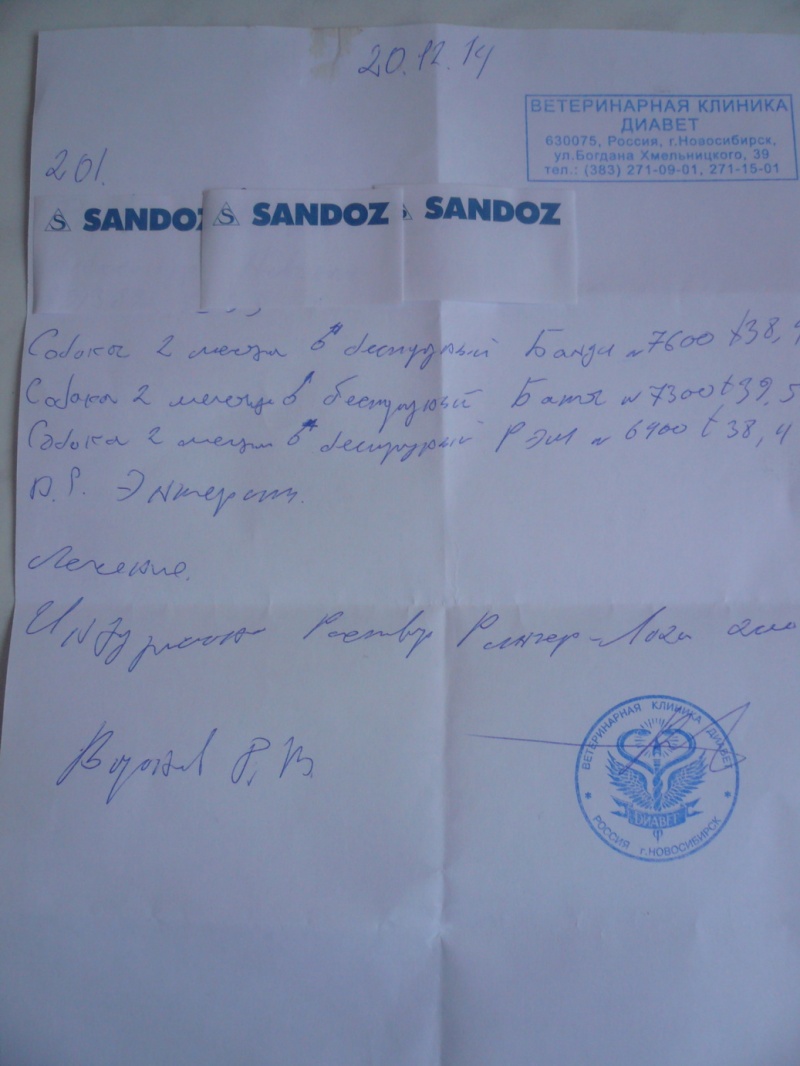 20.12.14
ВЕТЕРИНАРНАЯ КЛИНИКА
ДИАВЕТ
630075, Россия, г.Новосибирск,
ул.Богдана Хмельницкого, 39
тел.: (383) 271-09-01, 271-15-01
201.
SANDOZ
SANDOZ
SANDOZ
Собака 2 месяца беспородный 7600 t 38,
Собака 2 месяца беспородный 7300 t 39,5
Собака 2 месяца беспородный РЭМ 6400 t 38,4
D.S. Энтерит.
Лечение.
Раствор Рингер-Лока
ВЕТЕРИНАРНАЯ КЛИНИКА ДИАВЕТ
ДИАВЕТ
РОССИЯ г.НОВОСИБИРСК